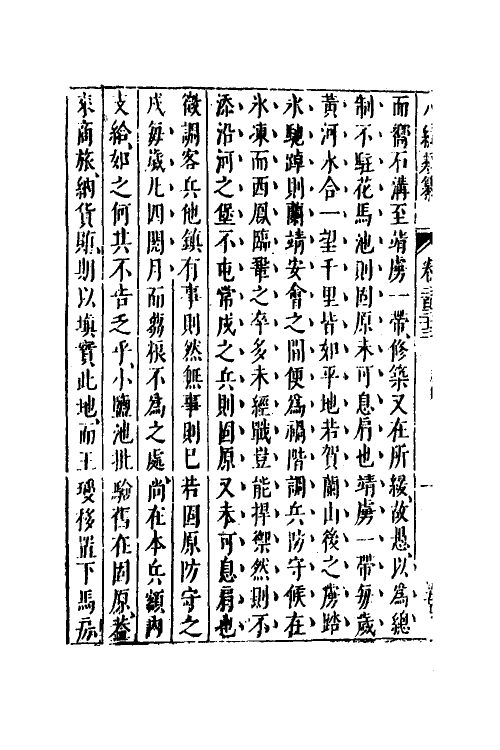 八編類纂　卷二百三十三
而嚮石溝至靖虜一帶修築又在所緩故愚以爲總
制不駐花馬池則固原未可息肩也靖虜一帶每歲
黃河水合一望千里皆如平地若賀蘭山後之虜踏
氷馳踔則蘭靖安會之間便爲禍階調兵防守候在
氷凍而西鳳臨鞏之卒多未經戰豈能捍禦然則不
添沿河之堡不屯常戍之兵則固原又未可息肩也
徵調客兵他鎮有事則然無事則已若固原防守之
戍每歲凡四閱月而芻根不爲之處尚在本兵額內
支給如之何其不告乏乎小鹽池批驗舊在固原葢
來商旅納貨賄期以填實此地而王瓊移置下馬房